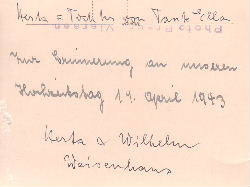 Herta = Tochter von Tante Ella.
Photo
Viersen
Zur Erinnerung an unseren
Hochzeitstag 14. April 1943
Herta & Wilhelm
Weisenhaus